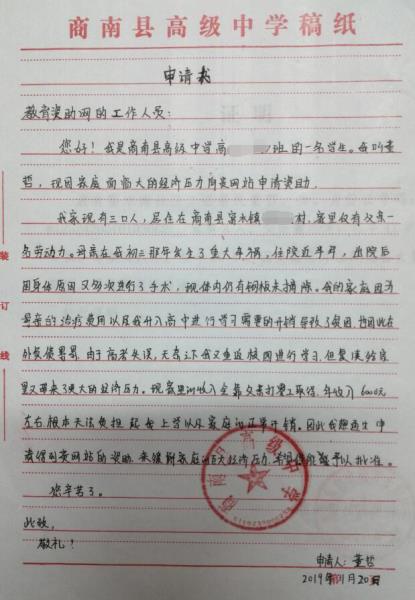 商南县高级中学稿纸
申请书
教育资助网的工作人员：
您好！我是商南县高级中学高 班的一名学生。我叫董
哲，现因家庭面临大的经济压力向贵网站申请资助。
我家现有三口人，居住在商南县富水镇 村，家里仅有父亲一
名劳动力。母亲在我初三那年发生了重大车祸，住院近半年，出院后
因身体原因又多次进行了手术，现体内仍有钢板未摘除。我的家庭因为
母亲的治疗费用以及我升入高中进行学习需要的开销导致了贫困，也因此在
外负债累累。由于高考失误，无奈之下我又重返校园进行学习，但复读给家
里又带来了更大的经济压力。现家里的收入全靠父亲打零工取得，年收入6000元
左右根本无法负担起我上学以及家庭的正常开销。因此我想再生申
请得到贵网站的资助，来缓解家庭的巨大经济压力，希望您能予以批准。
您辛苦了。
此致，
敬礼！
申请人：董哲
2019年11月20日
装订线
商南县高级中学